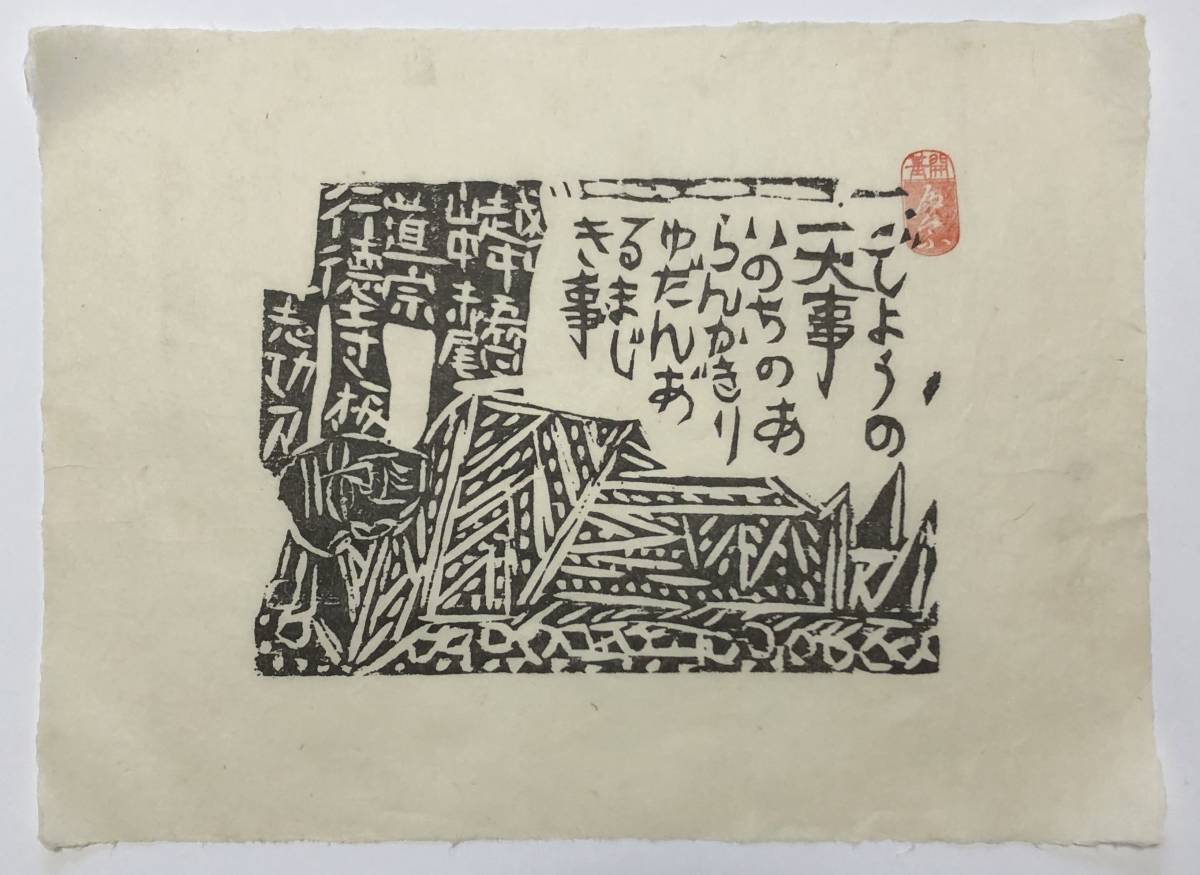 開基
一ごしようの
一大事
いのちのあ
らんかぎり
ゆだんあ
るまじ
き事
越中五箇
山中赤尾
道宗
行徳寺板
志功刀